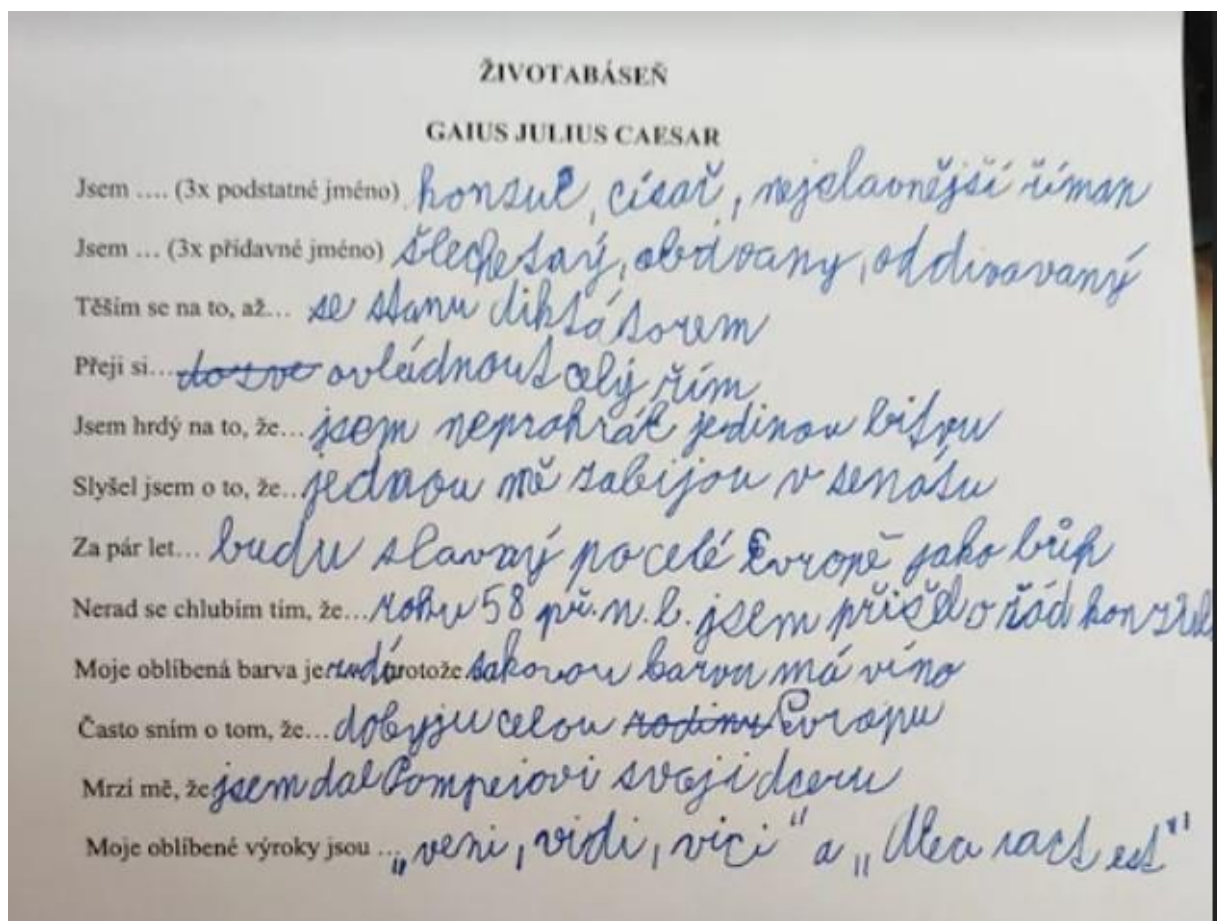 ŽIVOTABÁSEŇ
GAIUS JULIUS CAESAR
Jsem .... (3x podstatné jméno) konsul, císař, nejslavnější říman
Jsem ... (3x přídavné jméno) šlechetný, obdivaný, oddivovaný
Těším se na to, až... se stanu diktátorem
Přeji si... ovládnout celý řím
Jsem hrdý na to, že... jsem neprohrál jedinou bitvu
Slyšel jsem o to, že.. jednou mě zabijou v senátu
Za pár let... budu slavný po celé Evropě jako bůh
Nerad se chlubím tím, že... roku 58 př. n. l. jsem přišel o řád konzula
Moje oblíbená barva je rudá protože takovou barvu má víno
Často sním o tom, že... dobyju celou rodinu Evropu
Mrzí mě, že jsem dal Pompeiovi svoji dceru
Moje oblíbené výroky jsou ... „veni, vidi, vici" a „Alea iact est"